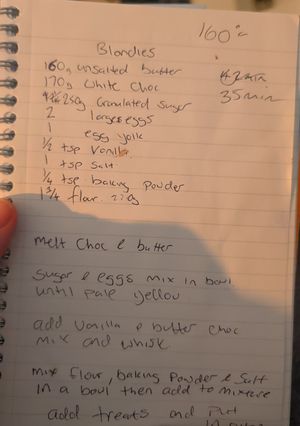 160°c
Blondies
160g unsalted butter
42min
170g White Choc
35min
250g Granulated Sugar
2 large eggs
1 egg yolk
1/2 tsp Vanilla
1 tsp Salt
1/4 tsp baking powder
1 3/4 flour 220g
Melt Choc & butter
Sugar & eggs mix in bowl
until pale yellow
add vanilla & butter choc
mix and whisk
mix flour, baking powder & Salt
in a bowl then add to mixture
add treats and put
in